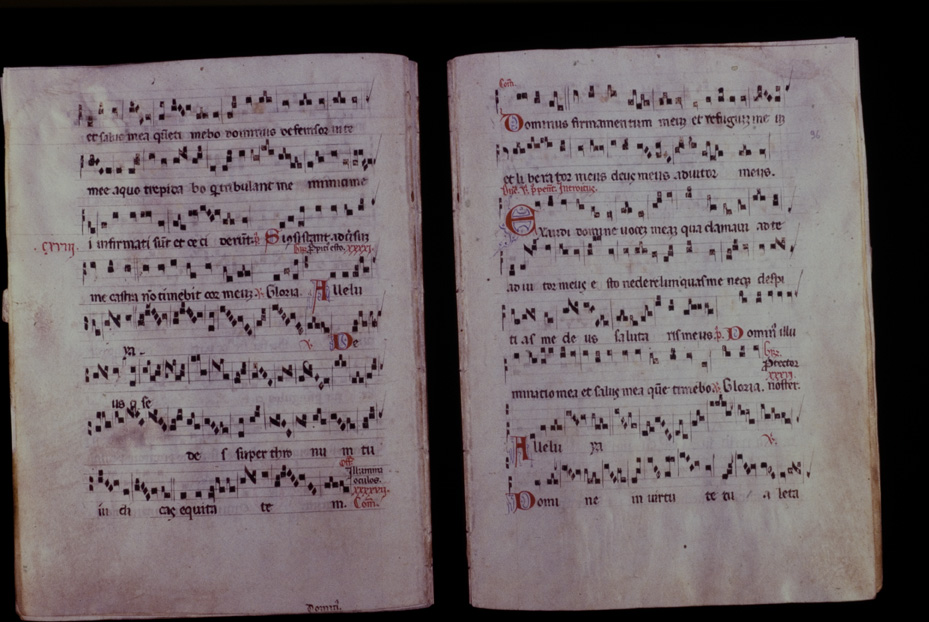 et salus mea quem timebo dominus defensor uite
mee a quo trepida bo qui tribulant me inimici me
i infirmati sunt et ce ci derunt. p. Si consistant aduersum
me castra non timebit cor meum. v. Gloria. Allelu
ya. v. De
us q se
de s super thro num et tu
iu di cas equita te
m. Com.
off. Illumina oculos.
Domin.
Com.
Dominus firmamentum meum et refugium me um
96
et li bera tor meus deus meus adiutor meus.
Exaudi domine uocem meam qua clamaui ad te
ad iu tor meus e sto ne derelinquas me neque despi
ti as me de us saluta ris meus. p. Domin illu
minatio mea et salus mea quem timebo. v. Gloria.
Protector noster.
Allelu ya v.
Domi ne in uirtu te tu a leta